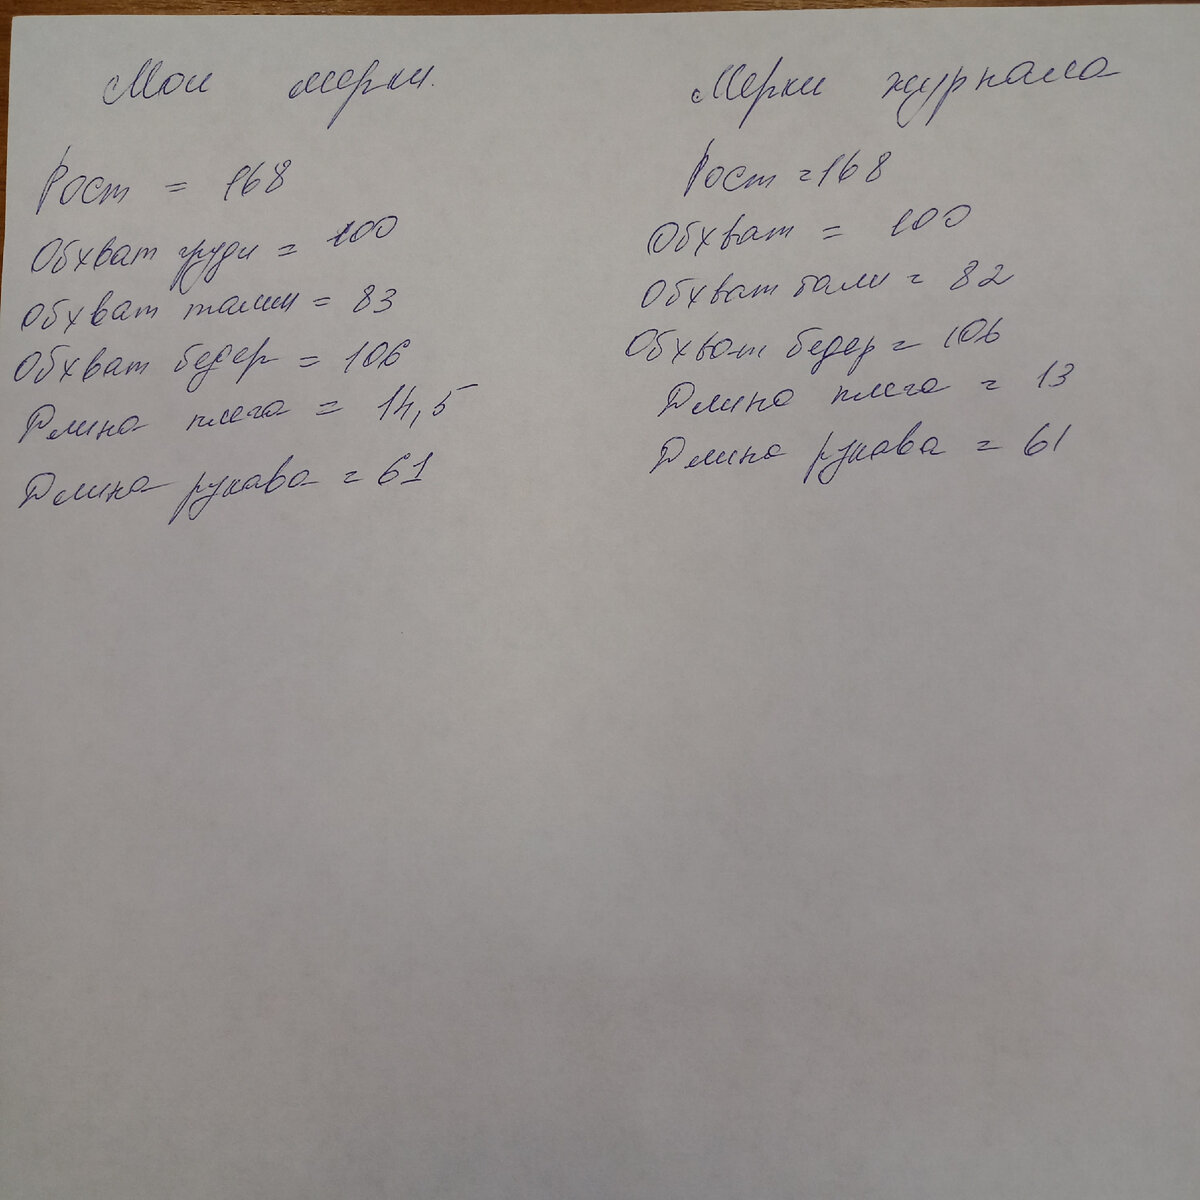 Мои мерки.
Рост = 168
Обхват груди = 100
Обхват талии = 83
Обхват бедер = 106
Длина плеча = 14,5
Длина рукава = 61
Мерки журнала
Рост = 168
Обхват = 100
Обхват тали = 82
Обхват бедер = 106
Длина плеча = 13
Длина рукава = 61